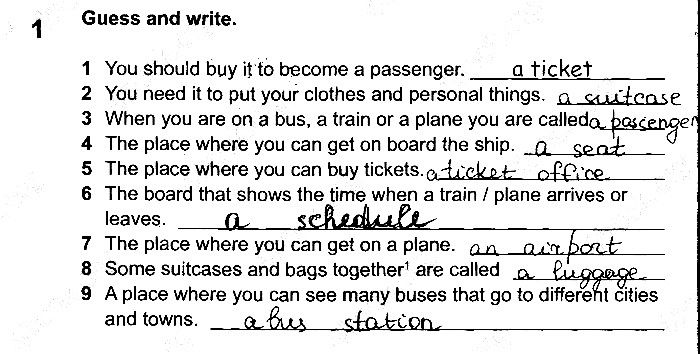 1 Guess and write.
1 You should buy it to become a passenger. a ticket
2 You need it to put your clothes and personal things. a suitcase
3 When you are on a bus, a train or a plane you are called a passenger
4 The place where you can get on board the ship. a seat
5 The place where you can buy tickets. a ticket office
6 The board that shows the time when a train / plane arrives or
leaves. a schedule
7 The place where you can get on a plane. an airport
8 Some suitcases and bags together¹ are called a luggage
9 A place where you can see many buses that go to different cities
and towns. a bus station